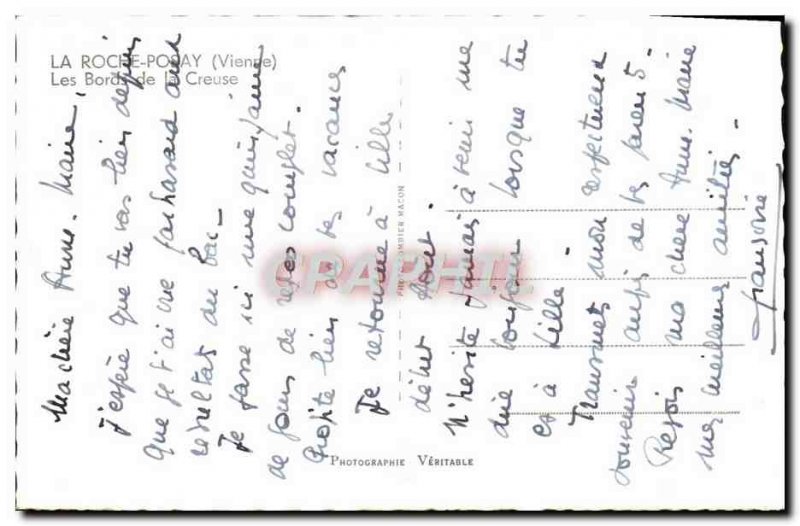 LA ROCHE-POSAY (Vienne)
Les Bords de la Creuse
Ma chère Anne-Marie,
J'espère que tu vas bien depuis
que je t'ai vue par hasard aux
résultats du bac -
Je passe ici une quinzaine
de jours de repos complet.
Profite bien de tes vacances
Je retourne à Lille
début Aout.
N'hésite jamais à venir me
dire bonjour lorsque tu
es à Lille.
Transmets mon respectueux
souvenir auprès de tes parents -
Reçois ma chère Anne-Marie
mes meilleures amitiés -
PHOTO COMBIER MACON
PHOTOGRAPHIE VÉRITABLE
CPAPHIL